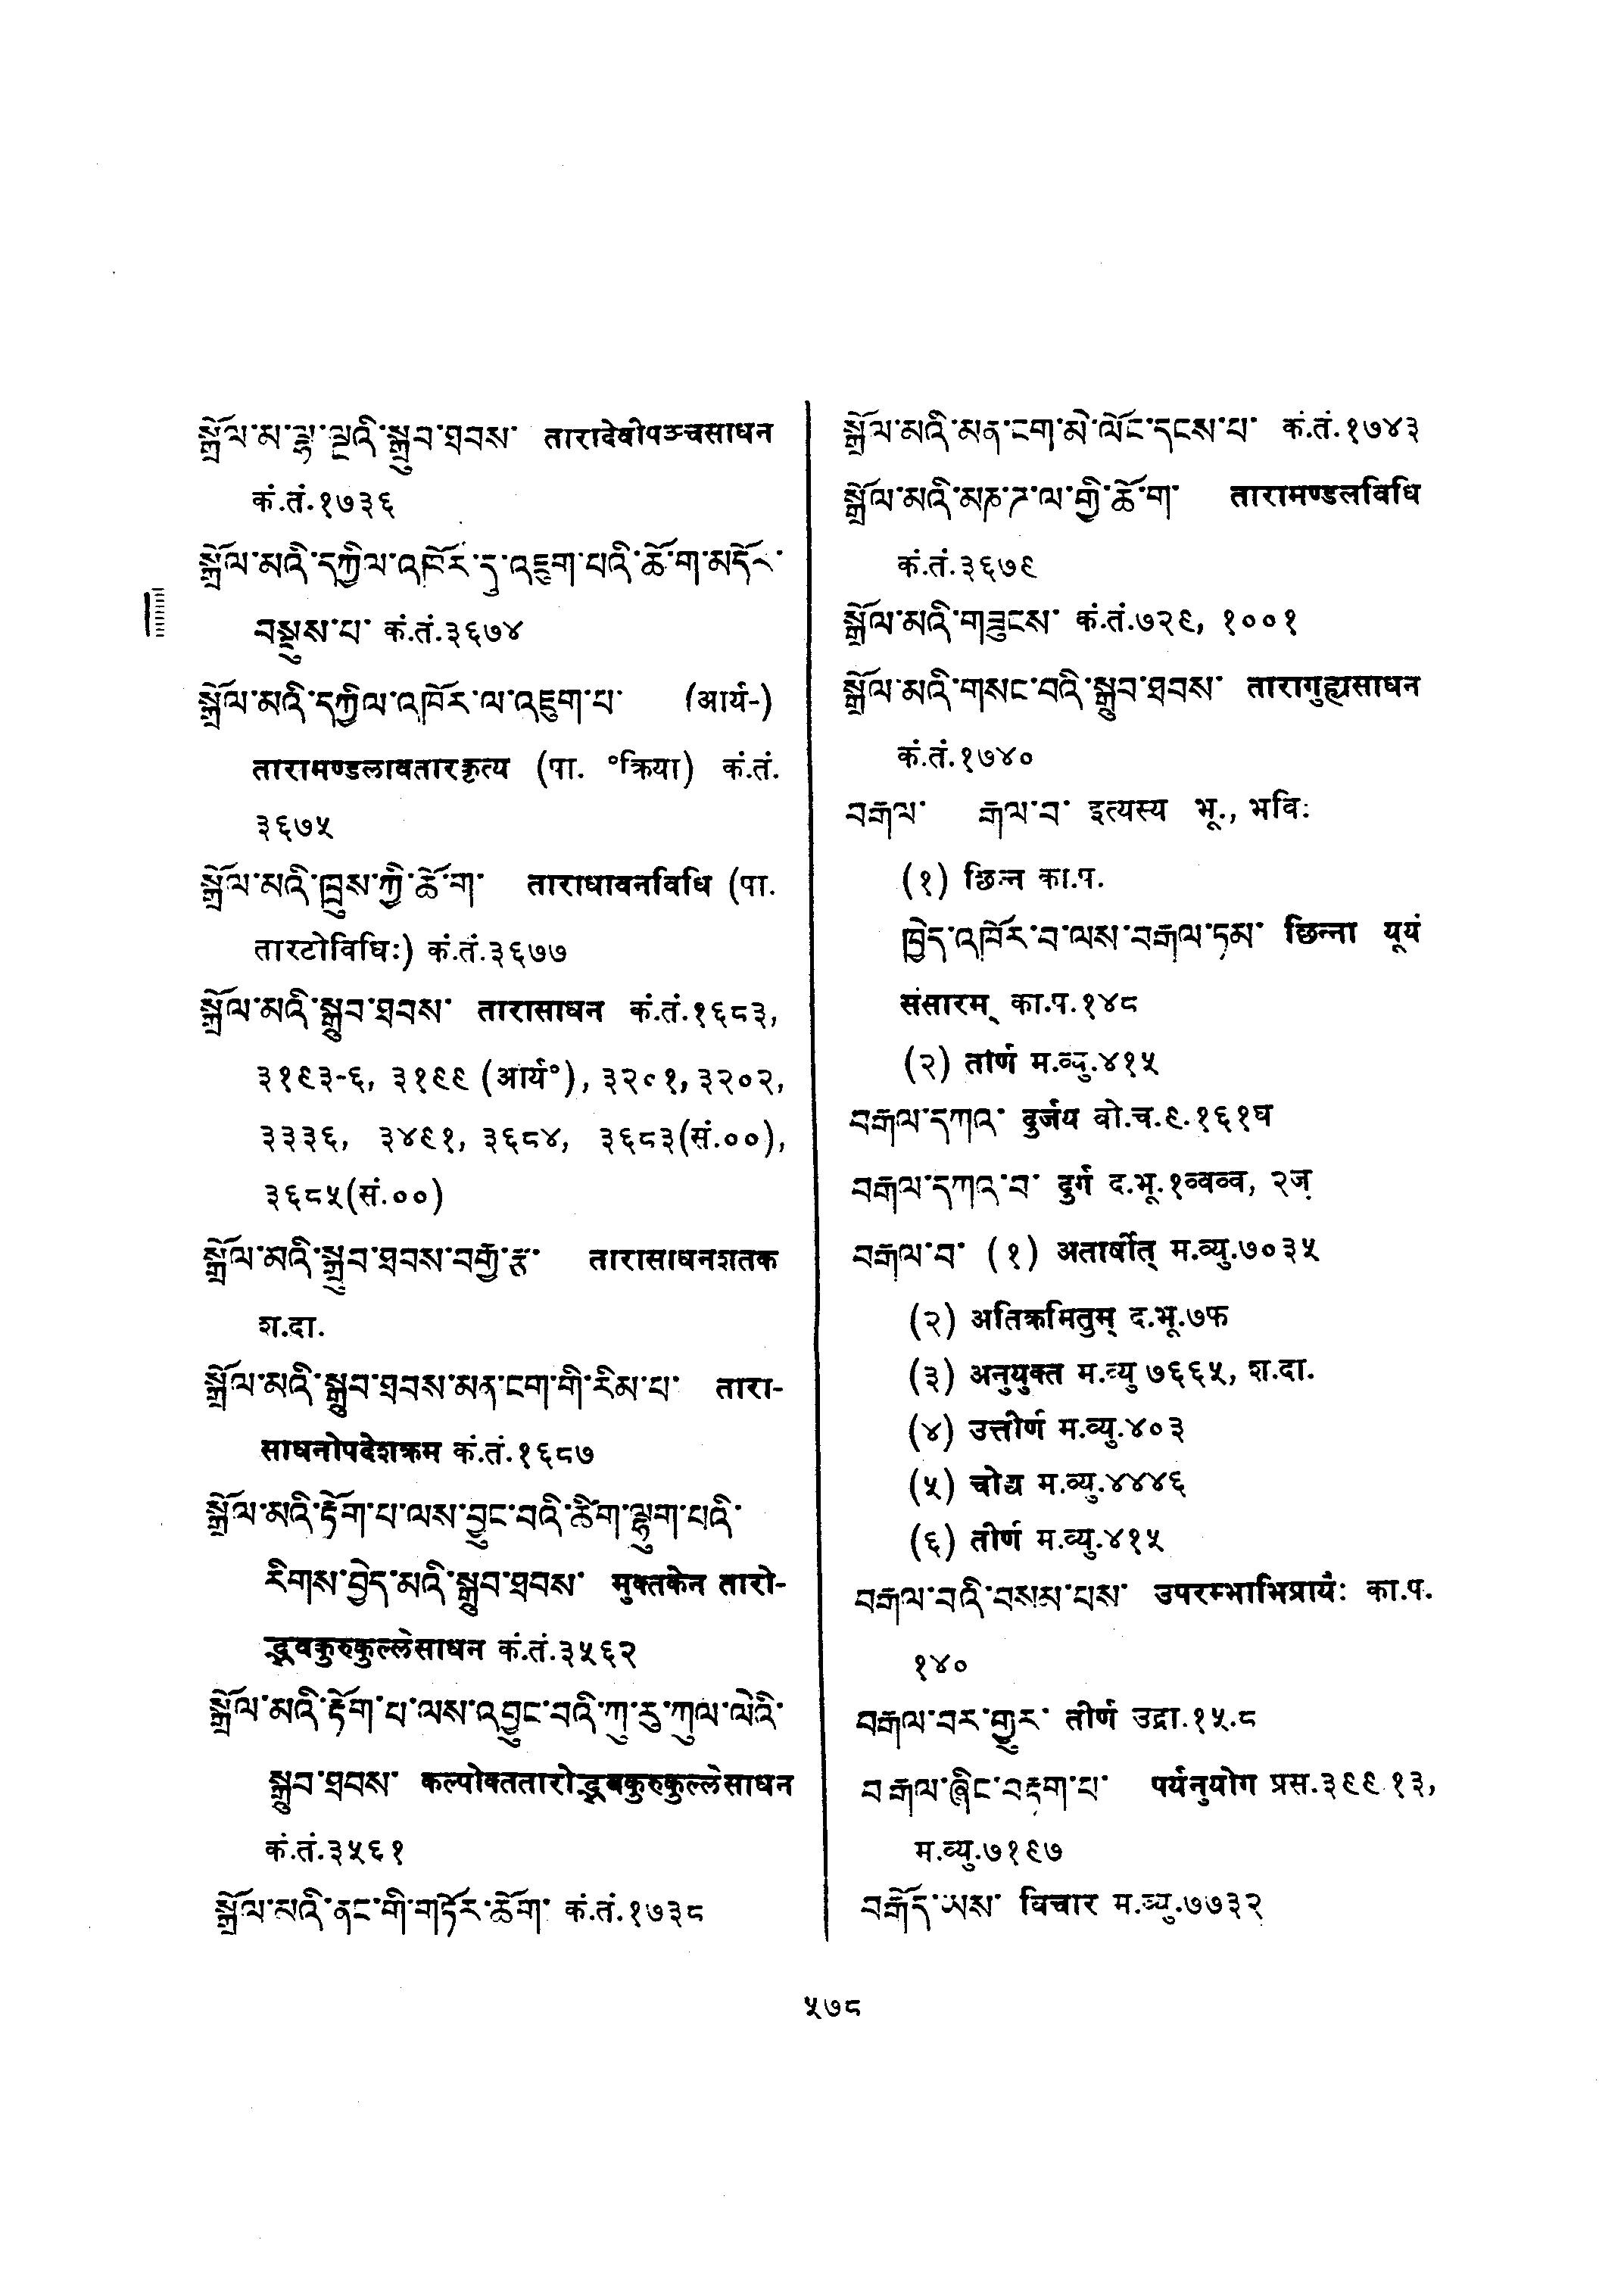 སྒྲོལ་མ་ལྷ་ལྔའི་སྒྲུབ་ཐབས་ तारादेवीपञ्चसाधन
कं.तं.१७३६
སྒྲོལ་མའི་དཀྱིལ་འཁོར་དུ་འཇུག་པའི་ཆོ་ག་མདོར་
བསྡུས་པ་ कं.तं.३६७४
སྒྲོལ་མའི་དཀྱིལ་འཁོར་ལ་འཇུག་པ་ (आर्य-)
तारामण्डलावतारकृत्य (पा. °क्रिया) कं.तं.
३६७५
སྒྲོལ་མའི་ཁྲུས་ཀྱི་ཆོ་ག་ ताराधावनविधि (पा.
तारटोविधिः) कं.तं.३६७७
སྒྲོལ་མའི་སྒྲུབ་ཐབས་ तारासाधन कं.तं.१६८३,
३१९३-६, ३१९९ (आर्य°), ३२०१, ३२०२,
३३३६, ३४९१, ३६८४, ३६८३(सं.००),
३६८५(सं.००)
སྒྲོལ་མའི་སྒྲུབ་ཐབས་བརྒྱ་རྩ་ तारासाधनशतक
श.दा.
སྒྲོལ་མའི་སྒྲུབ་ཐབས་མན་ངག་གི་རིམ་པ་ तारा-
साधनोपदेशक्रम कं.तं.१६८७
སྒྲོལ་མའི་རྟོག་པ་ལས་བྱུང་བའི་ཚིག་ལྷུག་པའི་
རིགས་བྱེད་མའི་སྒྲུབ་ཐབས་ मुक्तकेन तारो-
द्भवकुरुकुल्लेसाधन कं.तं.३५६२
སྒྲོལ་མའི་རྟོག་པ་ལས་འབྱུང་བའི་ཀུ་རུ་ཀུལ་ལེའི་
སྒྲུབ་ཐབས་ कल्पोक्ततारोद्भवकुरुकुल्लेसाधन
कं.तं.३५६१
སྒྲོལ་མའི་ནང་གི་གཏོར་ཆོག་ कं.तं.१७३८
སྒྲོལ་མའི་མན་ངག་མེ་ལོང་དངས་པ་ कं.तं.१७४३
སྒྲོལ་མའི་མཎ་ཌ་ལ་གྱི་ཆོ་ག་ तारामण्डलविधि
कं.तं.३६७९
སྒྲོལ་མའི་གཟུངས་ कं.तं.७२९, १००१
སྒྲོལ་མའི་གསང་བའི་སྒྲུབ་ཐབས་ तारागुह्यसाधन
कं.तं.१७४०
བརྒལ་ རྒལ་བ་ इत्यस्य भू., भवि:
(१) छिन्न का.प.
ཁྱེད་འཁོར་བ་ལས་བརྒལ་ཏམ་ छिन्ना यूयं
संसारम् का.प.१४८
(२) तीर्ण म.व्यु.४१५
བརྒལ་དཀའ་ दुर्जय बो.च.९.१६१घ
བརྒལ་དཀའ་བ་ दुर्ग द.भू.१व्वव्व, २ज्
བརྒལ་བ་ (१) अतार्षीत् म.व्यु.७०३५
(२) अतिक्रमितुम् द.भू.७फ
(३) अनुयुक्त म.व्यु ७६६५, श.दा.
(४) उत्तीर्ण म.व्यु.४०३
(५) चोद्य म.व्यु.४४४६
(६) तीर्ण म.व्यु.४१५
བརྒལ་བའི་བསམ་པས་ उपरम्भाभिप्रायं: का.प.
१४०
བརྒལ་བར་གྱུར་ तीर्ण उद्रा.१५.८
བརྒལ་ཞིང་བརྟག་པ་ पर्यनुयोग प्रस.३९९.१३,
म.व्यु.७१९७
བརྒོད་ཡས་ विचार म.व्यु.७७३२
५७८